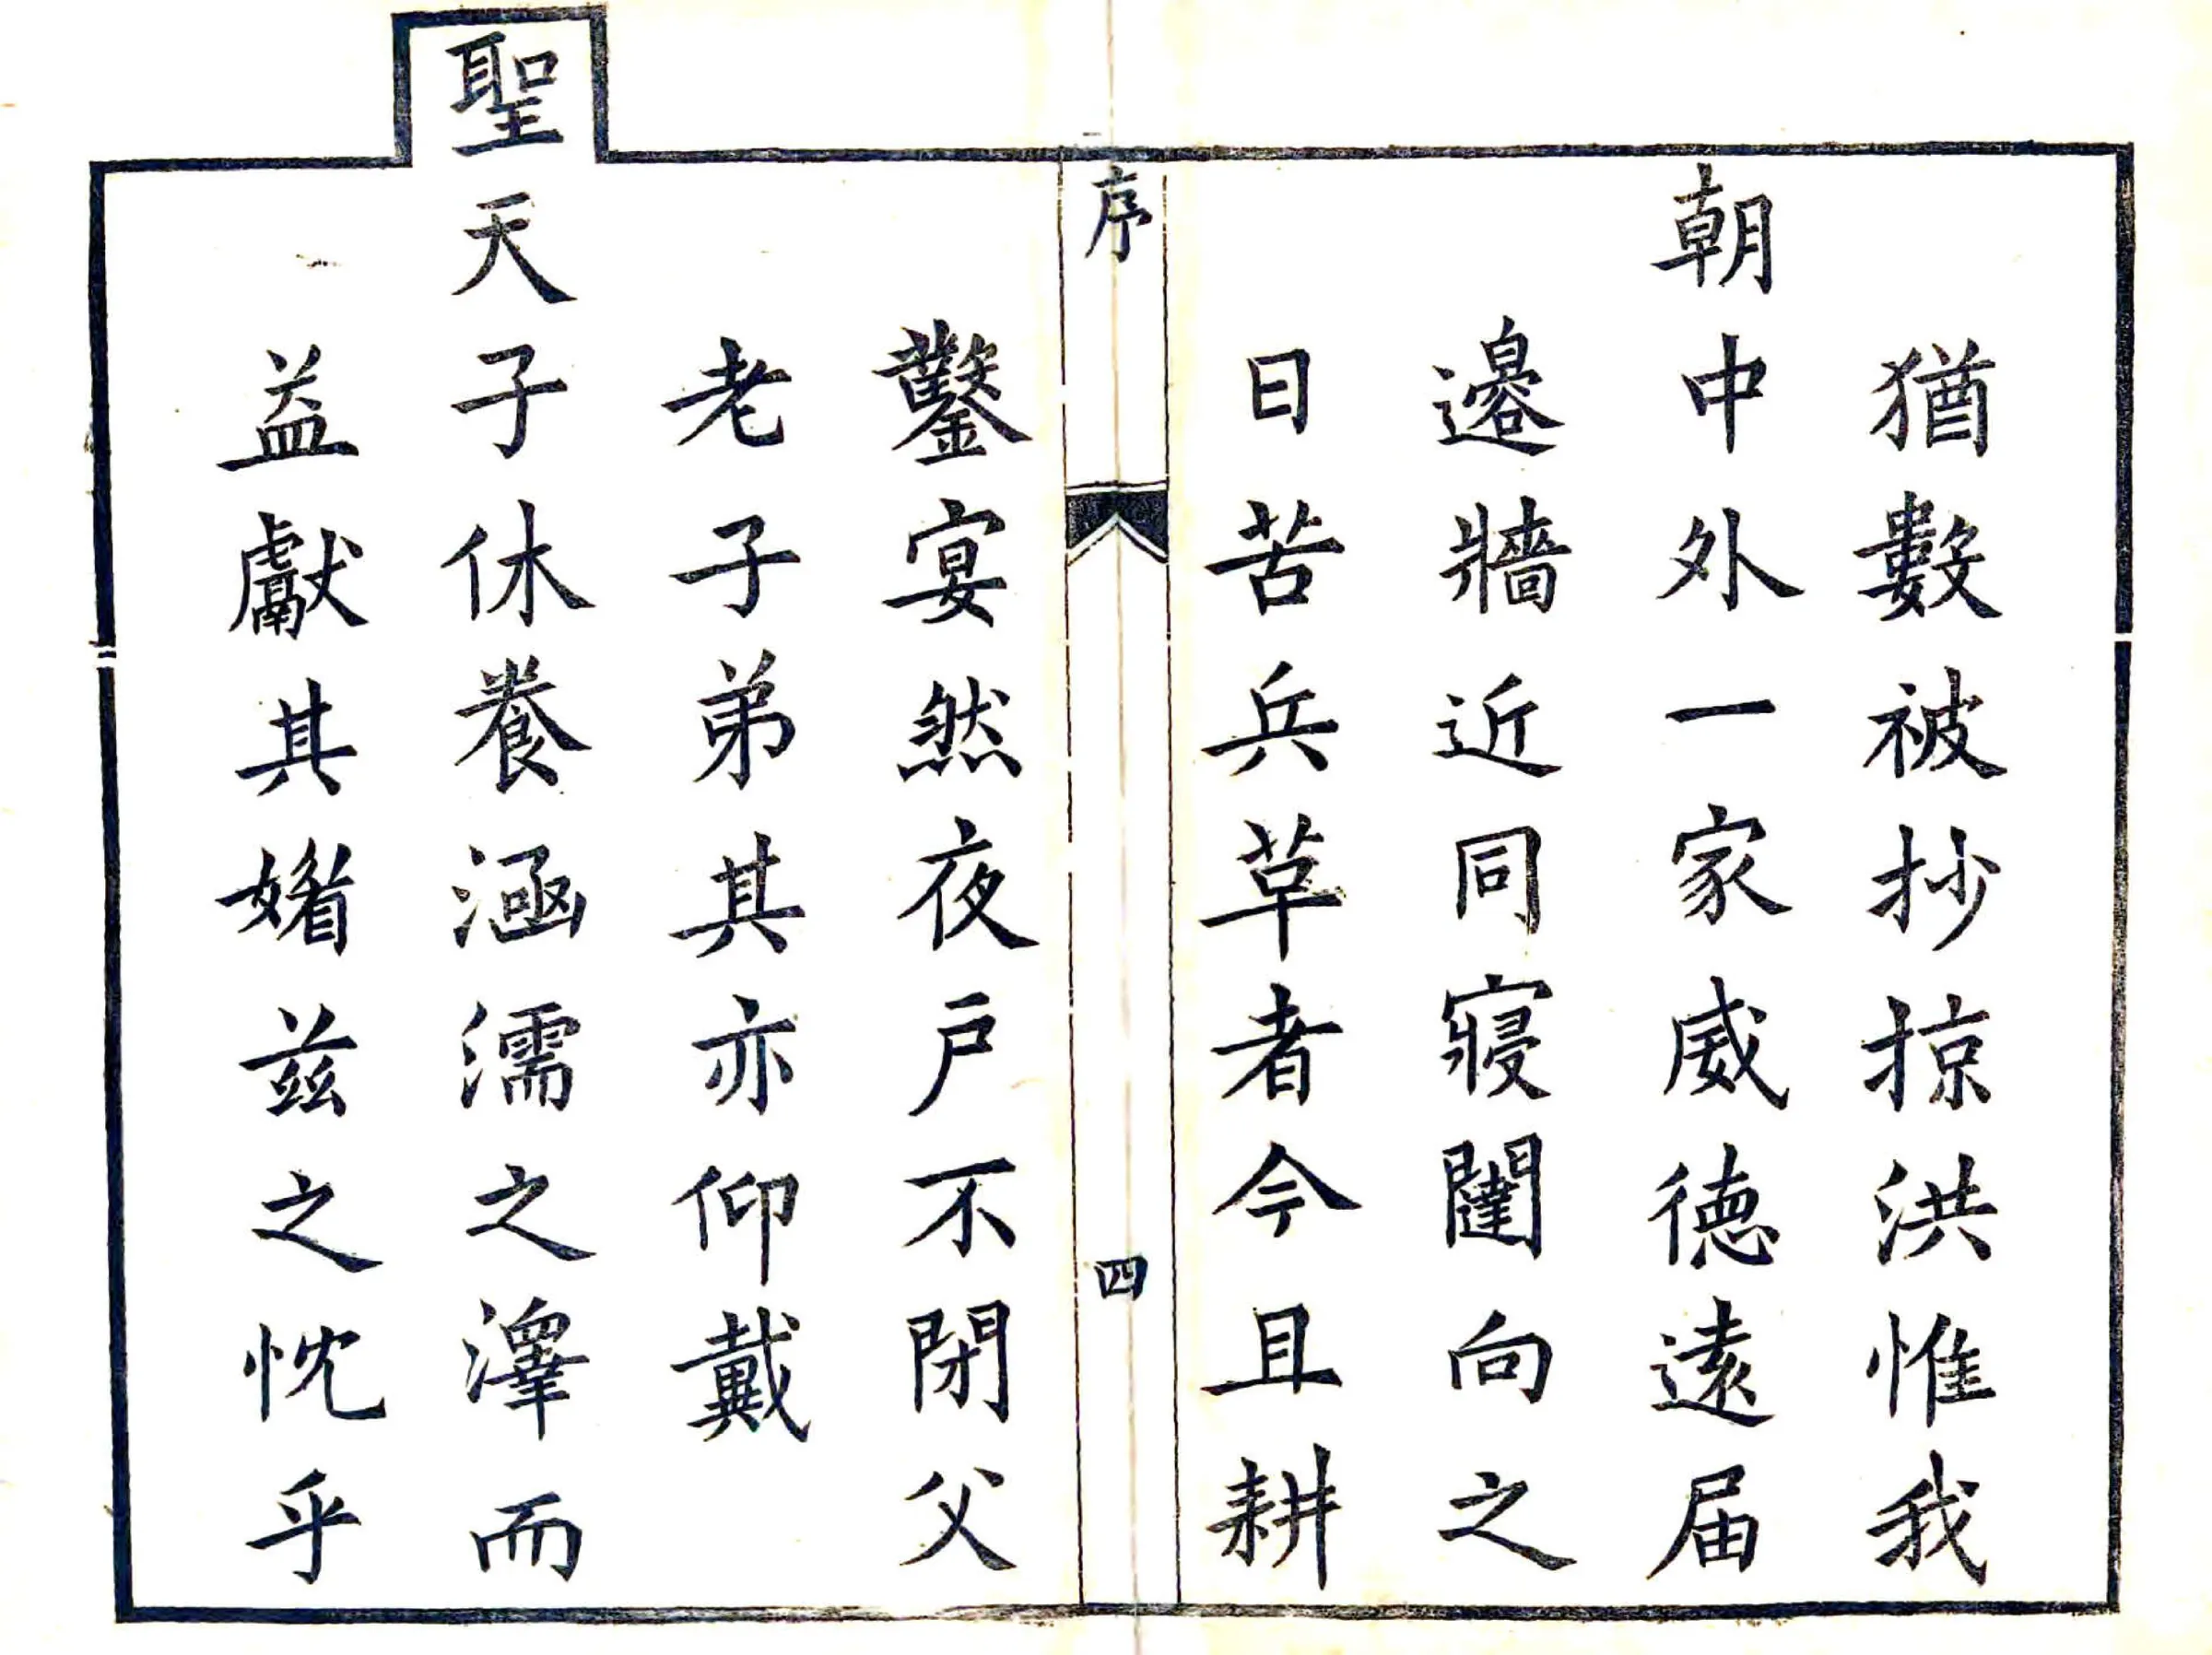 猶數被抄掠洪惟我
朝中外一家威德遠届
邊牆近同寢闥向之
日苦兵草者今且耕
序
四
鑿宴然夜戸不閉父
老子弟其亦仰戴
聖天子休養涵濡之澤而
益獻其媚兹之忱乎